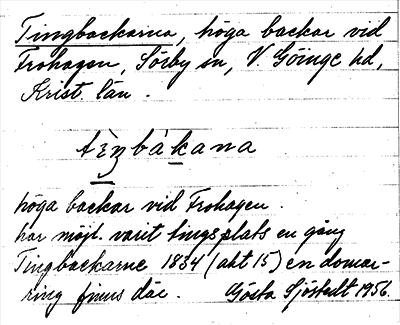 Tingbackarna, höga backar vid
Frohagen, Sörby sn, V. Göinge hd,
Krist. län.
höga backar vid Frohagen.
har möjl. varit tingsplats en gång
Tingbackarne 1834 (akt 15) en domar-
ring finns där. Gösta Sjöstedt 1956.